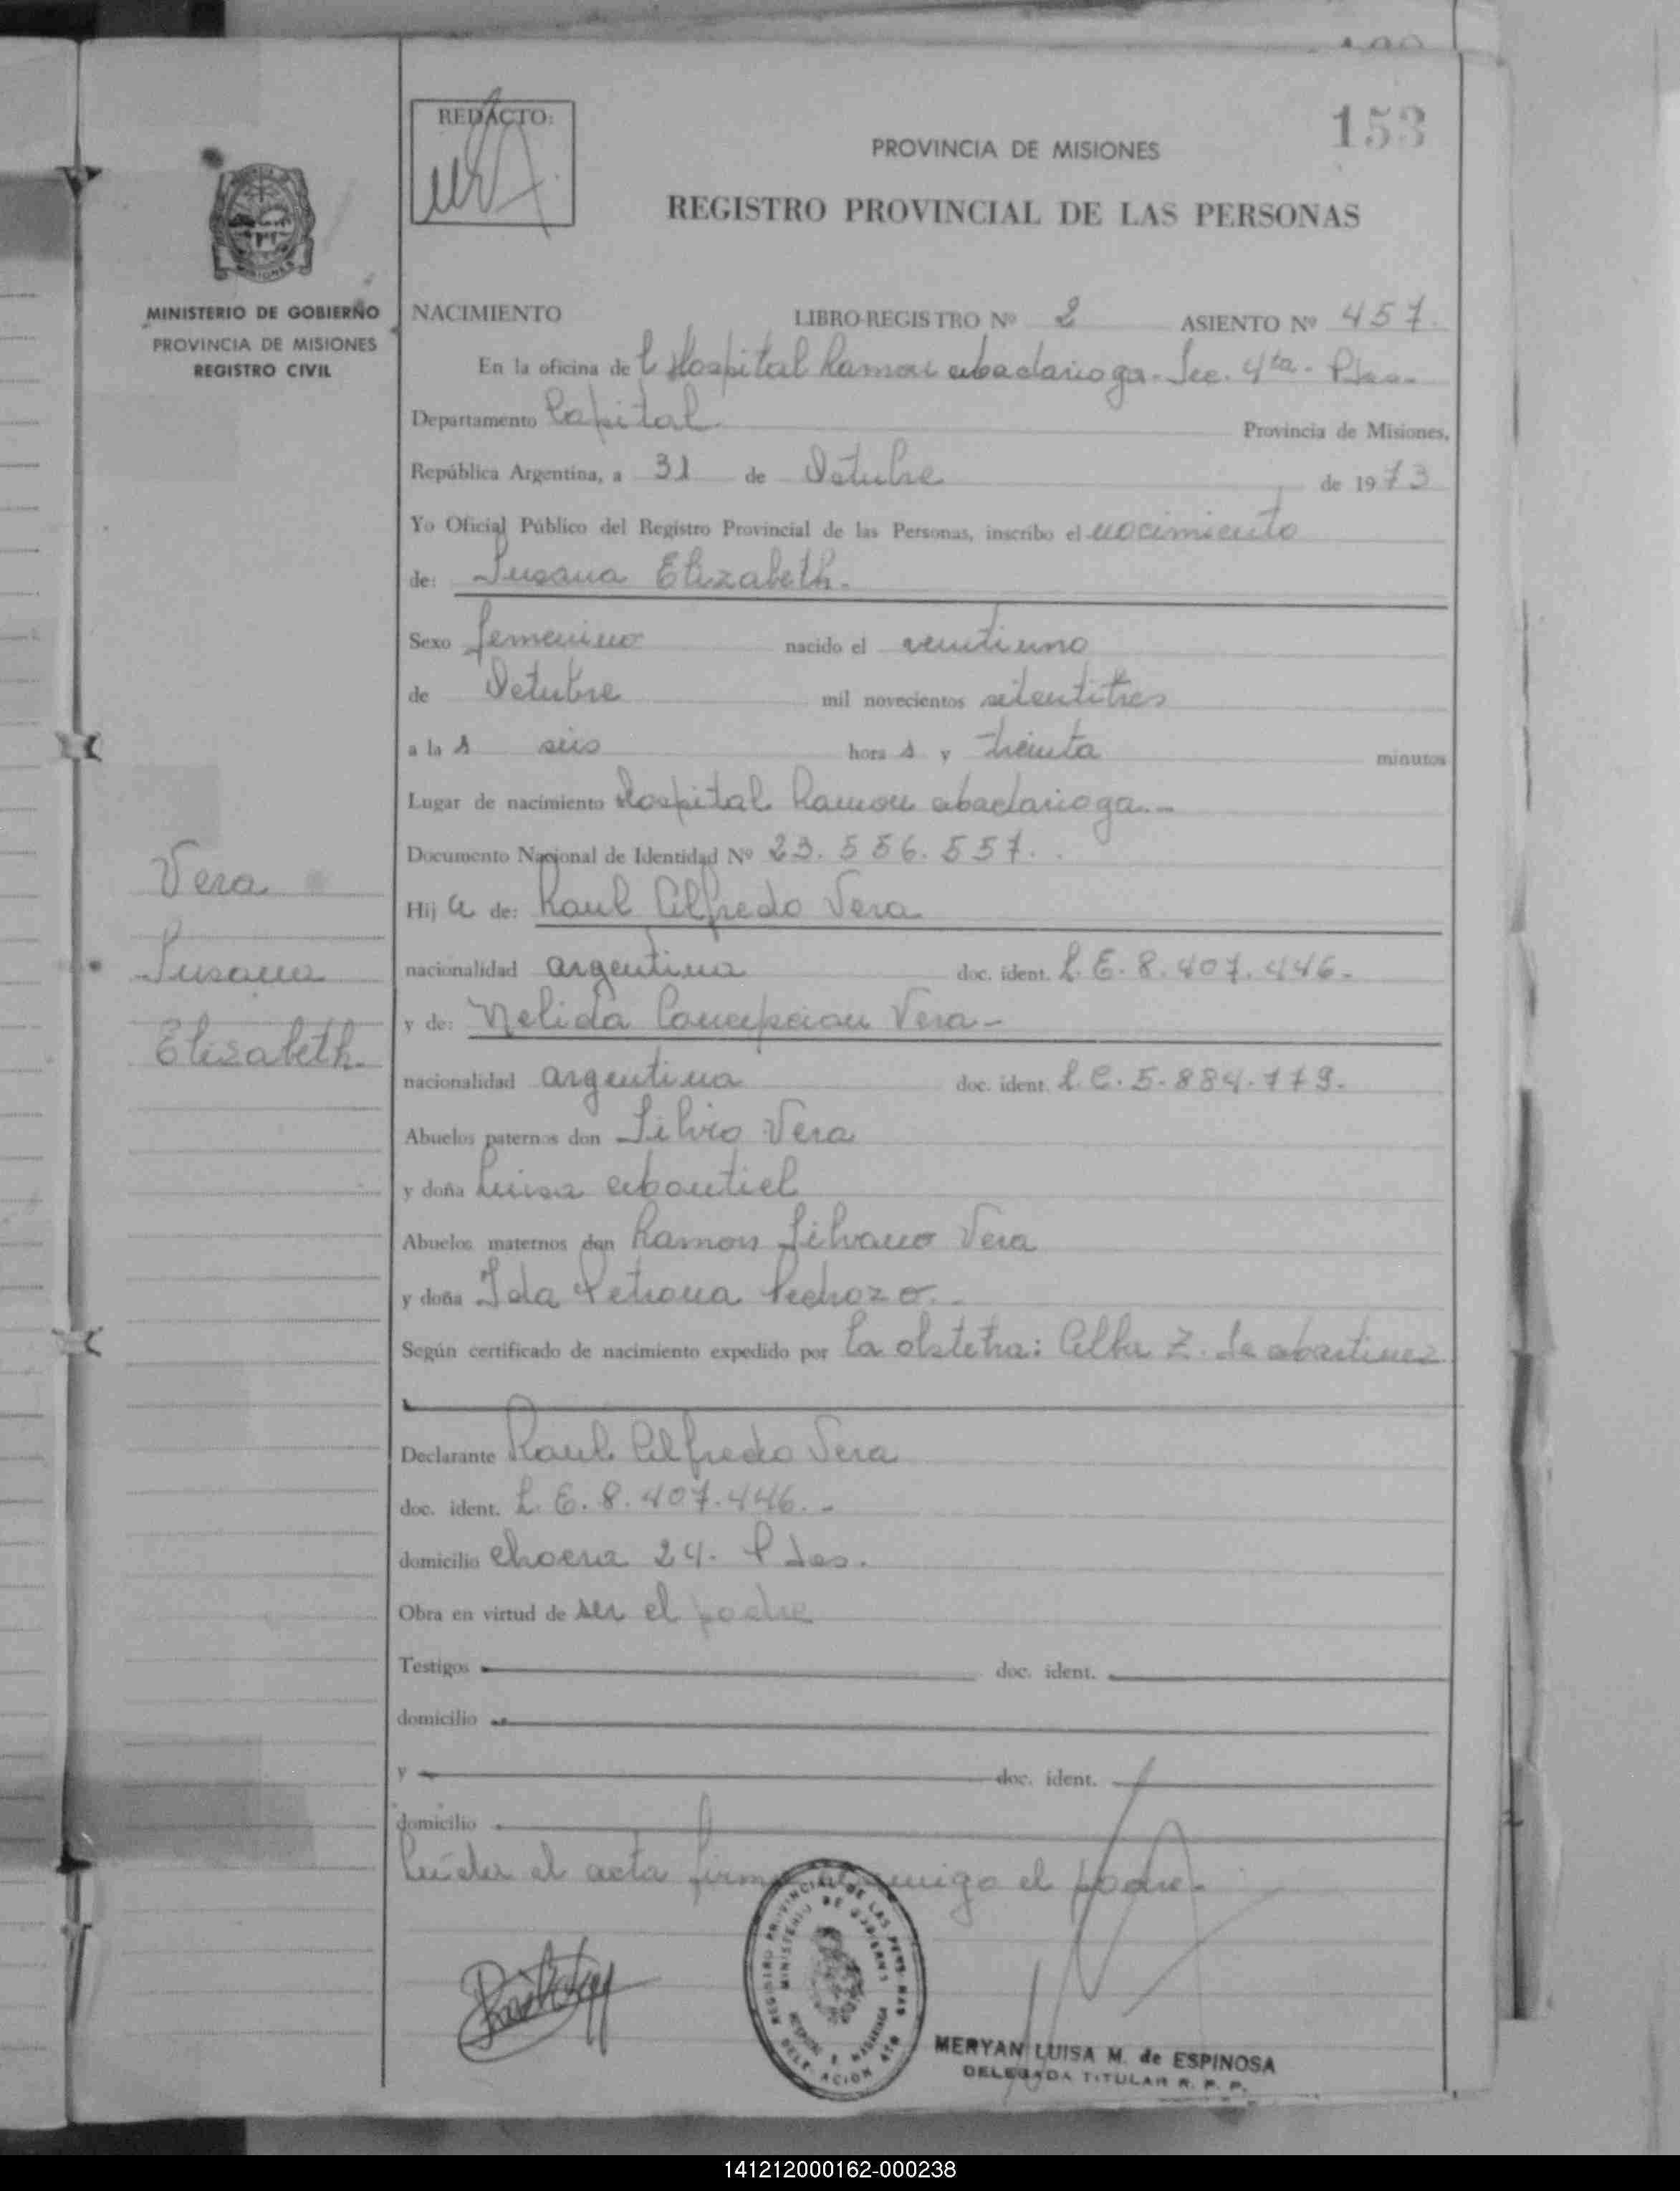 153
REDACTO:
PROVINCIA DE MISIONES
REGISTRO PROVINCIAL DE LAS PERSONAS
MINISTERIO DE GOBIERNO
PROVINCIA DE MISIONES
REGISTRO CIVIL
NACIMIENTO LIBRO-REGISTRO Nº 2 ASIENTO Nº 457.
En la oficina de Hospital Ramon Madariaga - Sec. 4ta. Pdas.
Departamento Capital Provincia de Misiones,
República Argentina, a 31 de Octubre de 1973
Yo Oficial Público del Registro Provincial de las Personas, inscribo el nacimiento
de: Susana Elizabeth.
Sexo femenino nacido el veintiuno
de Octubre mil novecientos setentitres
a la s seis hora s y treinta minutos
Lugar de nacimiento Hospital Ramon Madariaga.-
Documento Nacional de Identidad Nº 23.556.557.
Vera
Susana
Elizabeth.
Hij a de: Raul Alfredo Vera
nacionalidad argentina doc. ident. L.E. 8.407.446.
y de: Nelida Concepcion Vera-
nacionalidad argentina doc. ident. L.C. 5.884.779.
Abuelos paternos don Silvio Vera
y doña Luisa Montiel
Abuelos maternos don Ramon Silvano Vera
y doña Ida Petrona Pedrozo.-
Según certificado de nacimiento expedido por la obstetra: Alba Z. de Martinez
Declarante Raul Alfredo Vera
doc. ident. L.E. 8.407.446.-
domicilio 24. Pdas.
Obra en virtud de ser el padre
Testigos doc. ident.
domicilio
y doc. ident.
domicilio
Leída el acta firma conmigo el padre.
REGISTRO PROVINCIAL DE LAS PERSONAS
MINISTERIO DE GOBIERNO
HOSPITAL R. MADARIAGA
DELEGACION 4TA
MERYAN LUISA M. de ESPINOSA
DELEGADA TITULAR R. P. P.
141212000162-000238